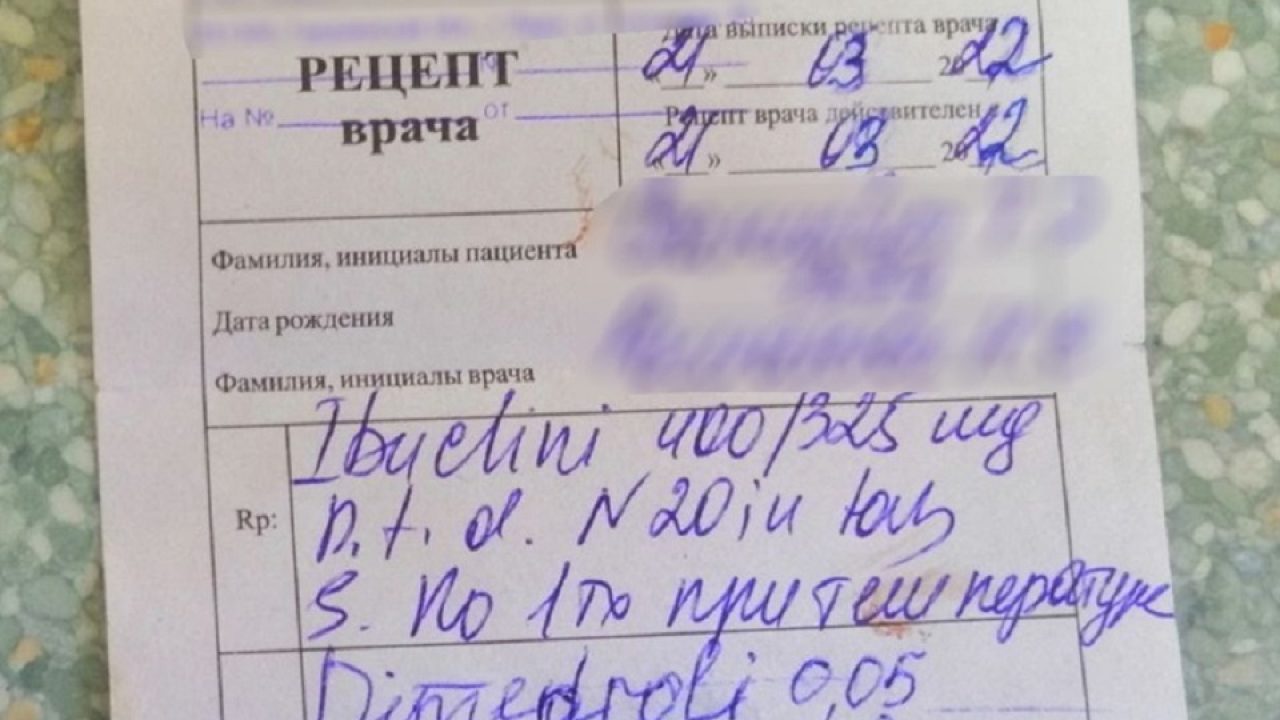 РЕЦЕПТ
врача
На № от
Дата выписки рецепта врача
«21» 03 2022
Рецепт врача действителен
«21» 03 2022
Фамилия, инициалы пациента
Дата рождения
Фамилия, инициалы врача
Rp:
Ibuclini 400/325 mg
D. t. d. N 20 in tab
S. По 1тб при температуре
Dimedroli 0,05